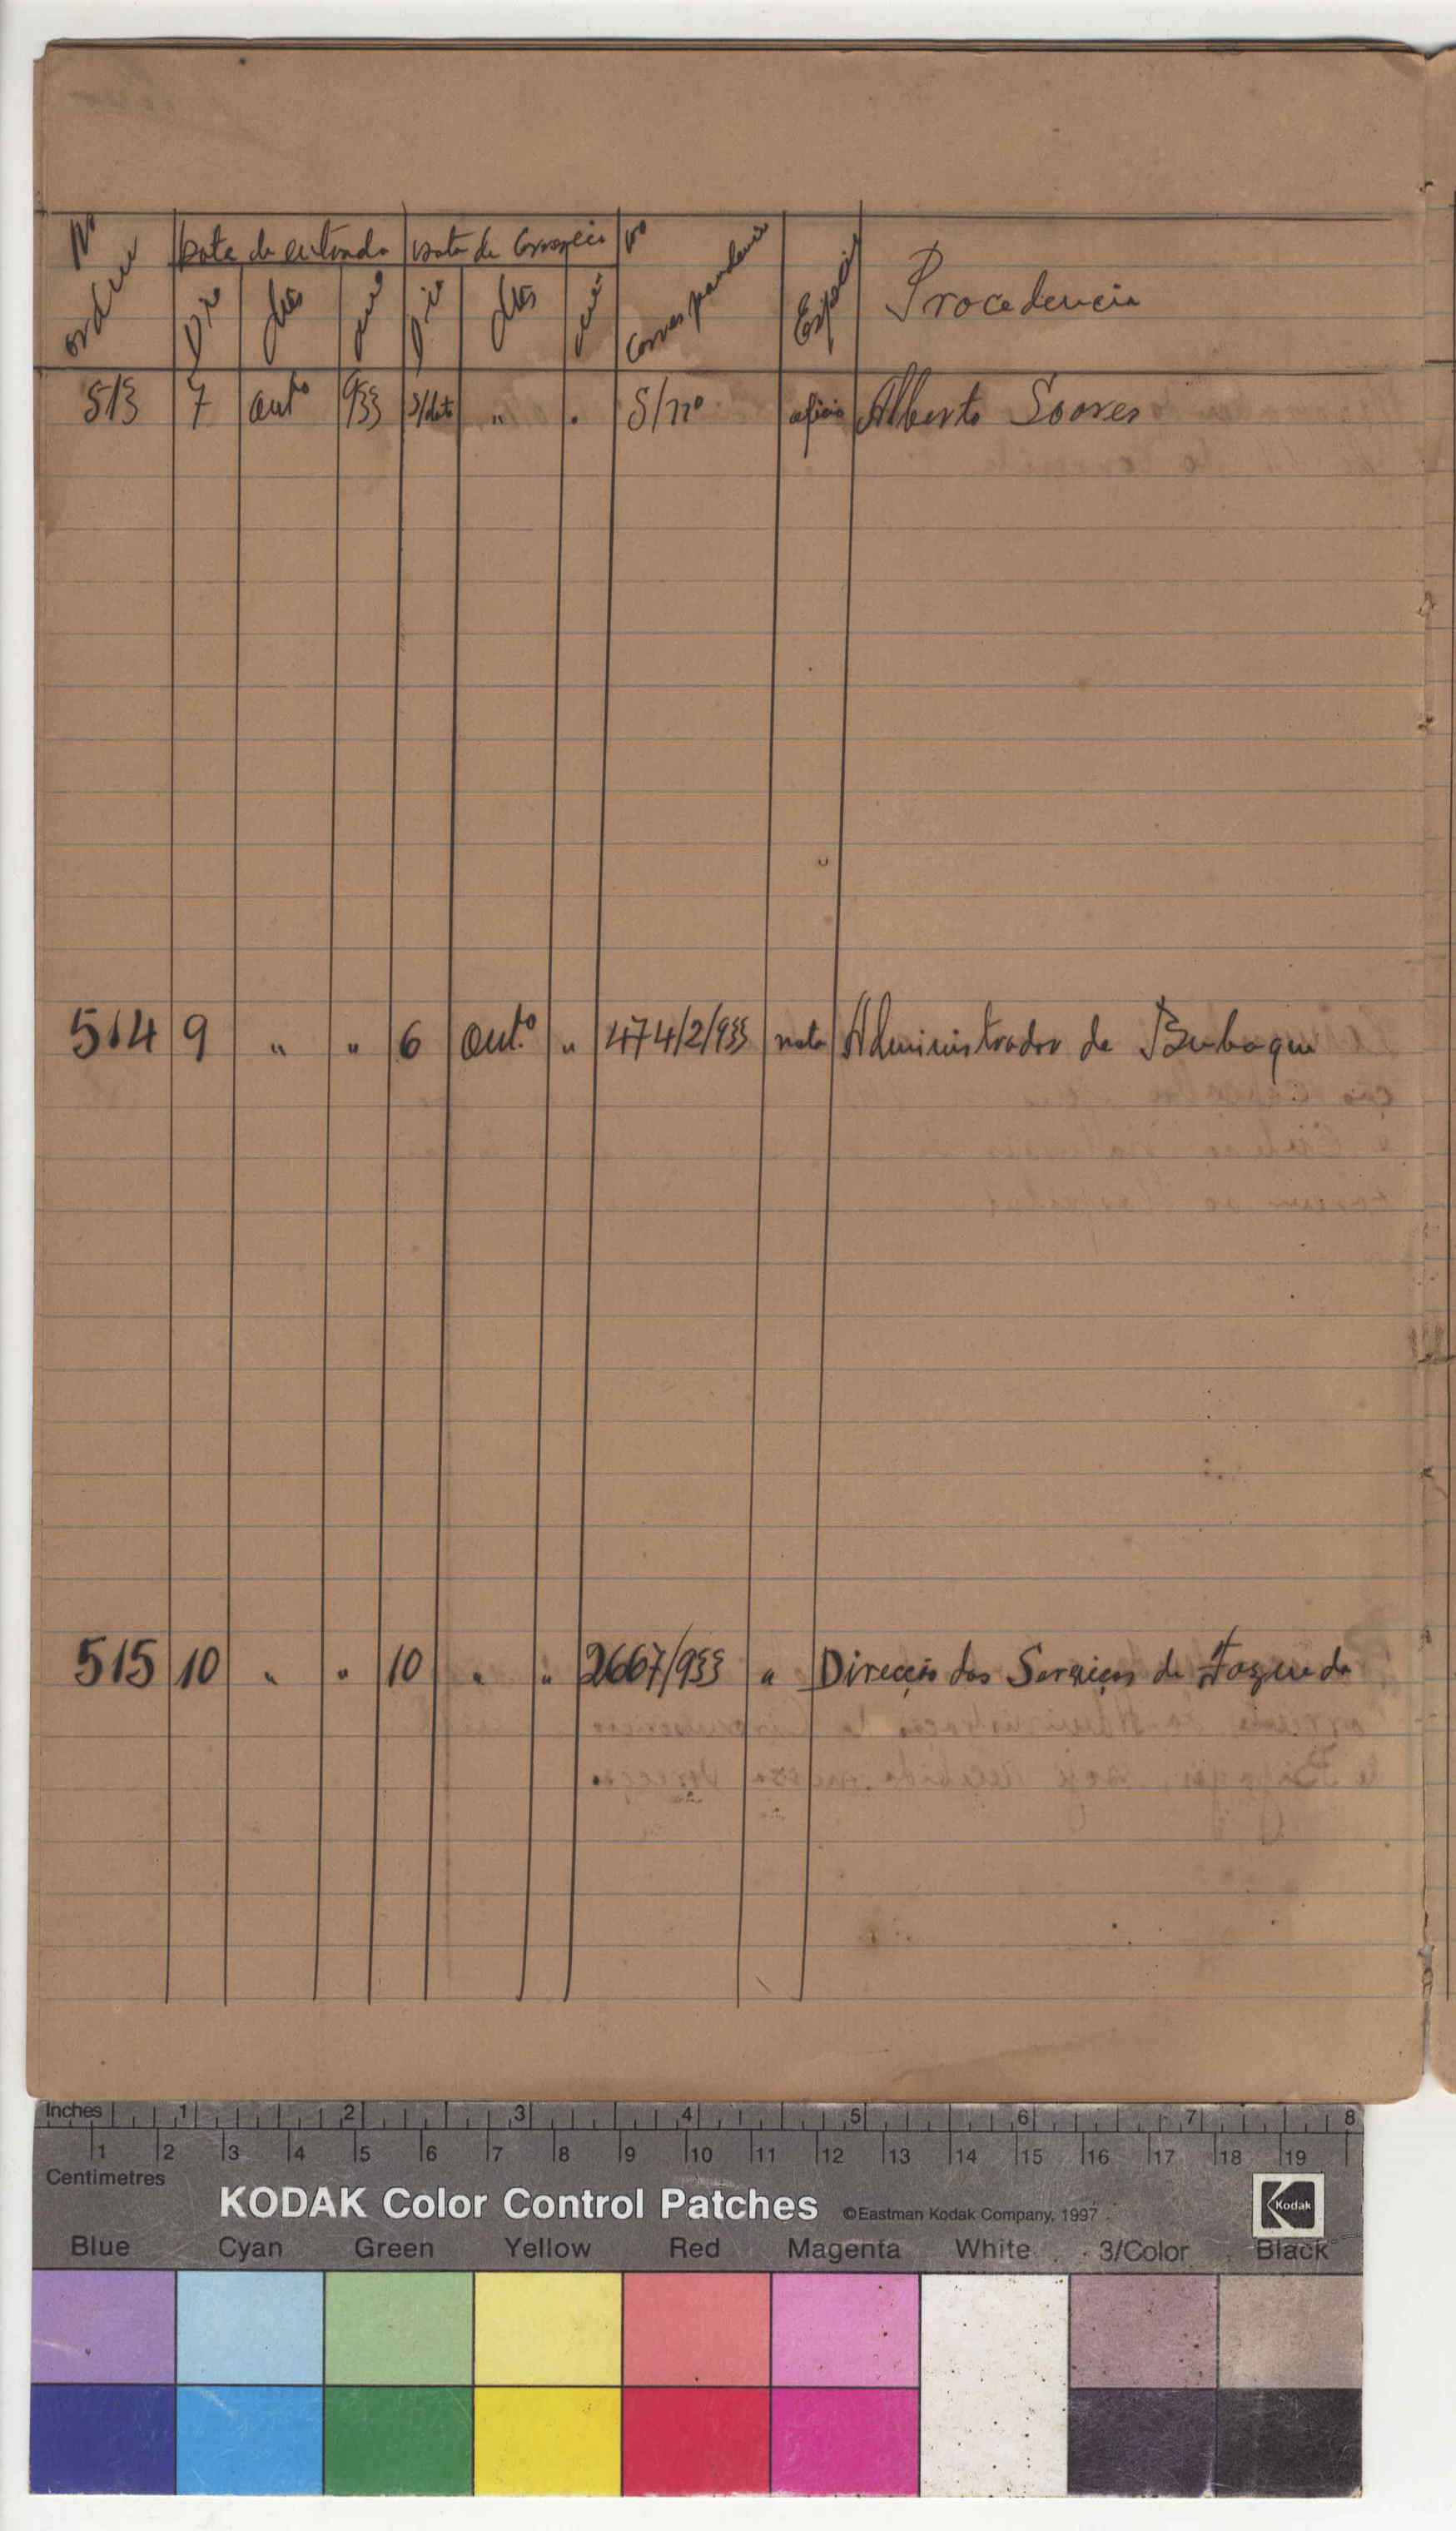 Nº ordem Data de entrada Data de Correspcia Nº Correspondencia Especie Procedencia
Dia Mês ano Dia Mês ano
513 7 outº 933 s/data " " S/nº oficio Alberto Soares
514 9 " " 6 Out.º " 474/2/933 nota Administrador de Bubaque
515 10 " " 10 " " 2667/933 " Direcção dos Serviços de Fazenda
Inches 1 2 3 4 5 6 7 8
1 2 3 4 5 6 7 8 9 10 11 12 13 14 15 16 17 18 19
Centimetres
KODAK Color Control Patches ©Eastman Kodak Company, 1997 Kodak
Blue Cyan Green Yellow Red Magenta White 3/Color Black